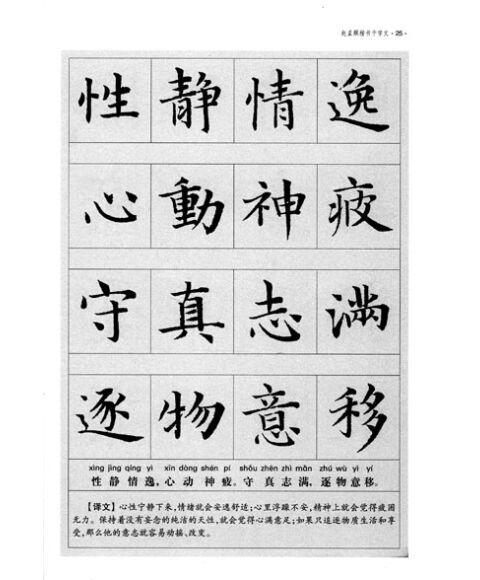 赵孟頫楷书千字文·25·
性靜情逸
心動神疲
守真志滿
逐物意移
xìng jìng qíng yì xīn dòng shén pí shǒu zhēn zhì mǎn zhú wù yì yí
性静情逸,心动神疲。守真志满,逐物意移。
【译文】心性宁静下来,情绪就会安逸舒适;心里浮躁不安,精神上就会觉得疲困
无力。保持着没有妄念的纯洁的天性,就会觉得心满意足;如果只追逐物质生活和享
受,那么他的意志就容易动摇、改变。